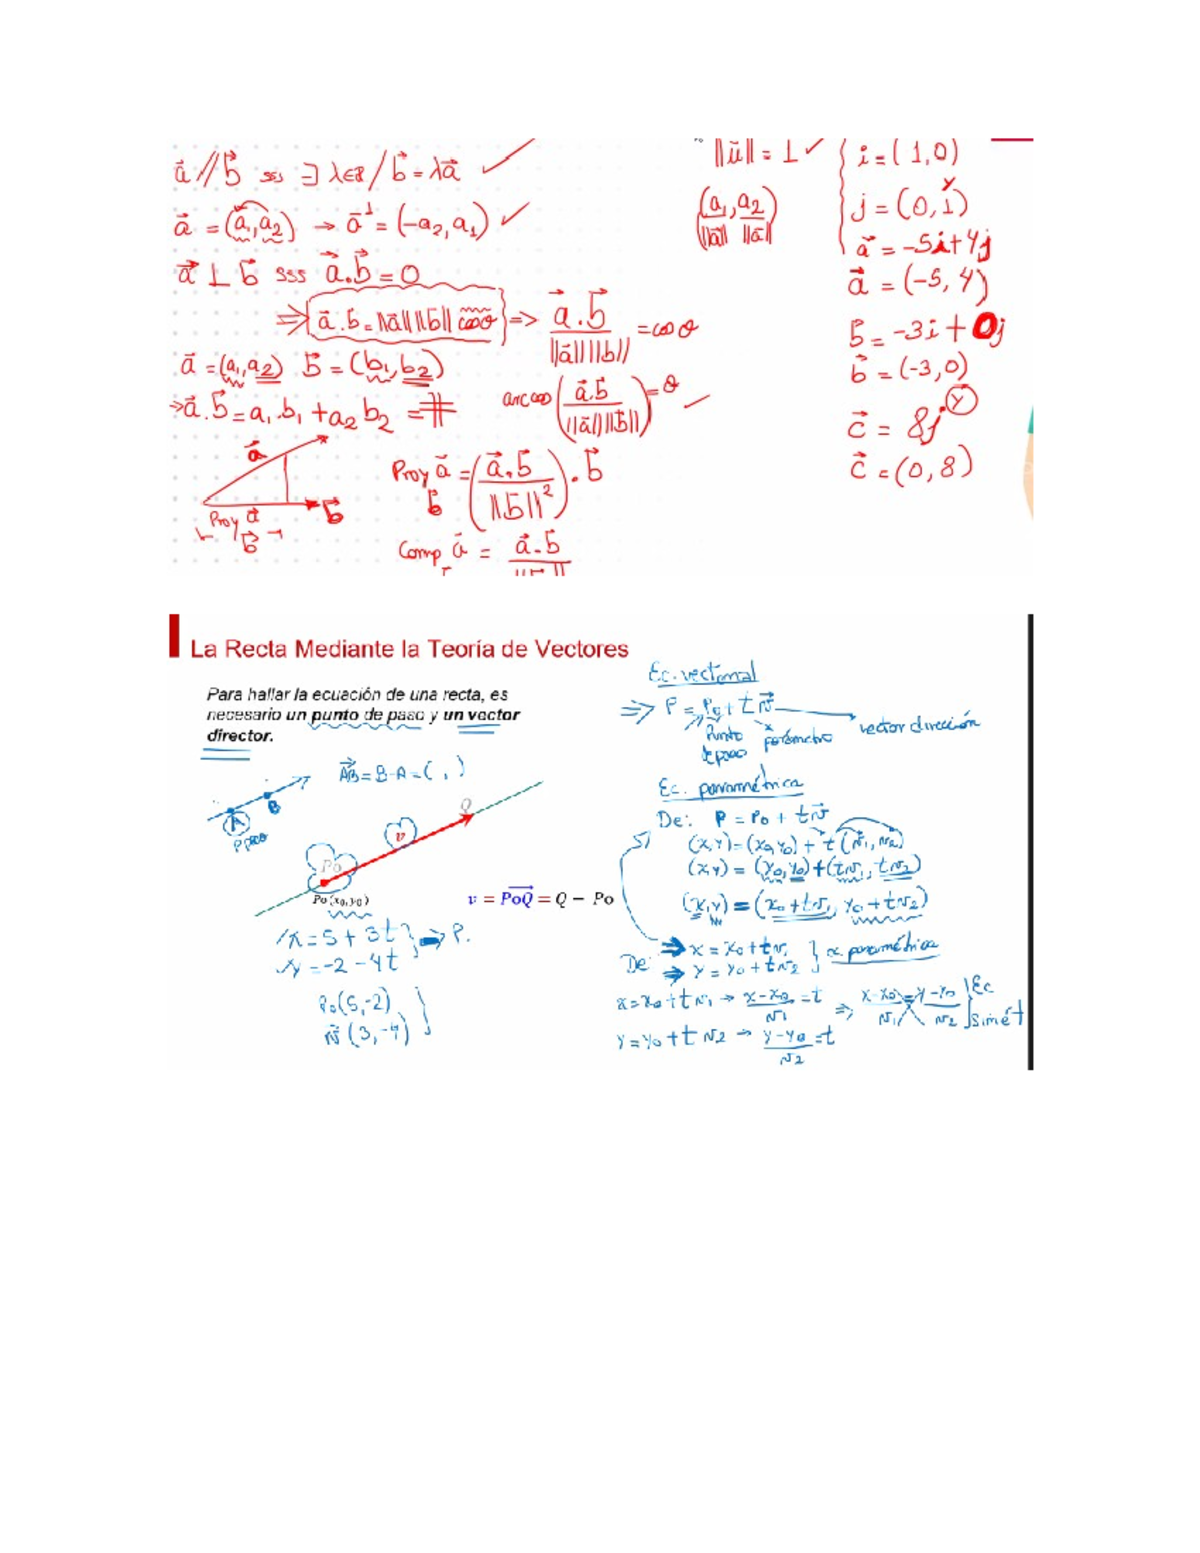 a⃗ // b⃗ sss ∃ λ∈ℝ / b⃗ = λa⃗ ✓
a⃗ = (a₁, a₂) → a⃗^⊥ = (-a₂, a₁) ✓
a⃗ ⊥ b⃗ sss a⃗.b⃗ = 0
⇒ a⃗.b⃗ = ||a⃗|| ||b⃗|| cos θ ⇒ a⃗.b⃗ / ||a⃗|| ||b⃗|| = cos θ
a⃗ = (a₁, a₂) b⃗ = (b₁, b₂)
→ a⃗.b⃗ = a₁.b₁ + a₂b₂ = #
arc cos (a⃗.b⃗ / ||a⃗|| ||b⃗||) = θ ✓
a⃗
b⃗
Proy a⃗
b⃗
Proy_b⃗ a⃗ = (a⃗.b⃗ / ||b⃗||²) . b⃗
Comp a⃗ = a⃗.b⃗
||u⃗|| = 1 ✓
(a₁, a₂)
||a⃗|| ||a⃗||
i = (1,0)
j = (0,1)
a⃗ = -5i + 4j
a⃗ = (-5, 4)
b = -3i + 0j
b⃗ = (-3,0)
c⃗ = 8j Y
c⃗ = (0, 8)
La Recta Mediante la Teoría de Vectores
Para hallar la ecuación de una recta, es
necesario un punto de paso y un vector
director.
AB⃗ = B - A = ( , )
A
B
P paso
Po
v
Q
Po(x0,y0)
v = PoQ⃗ = Q − Po
x = 5 + 3t
y = -2 - 4t
} → P.
P₀(5,-2)
v⃗(3,-4)
Ec. vectorial
⇒ P = P₀ + t v⃗
vector dirección
Punto
de paso
parámetro
Ec. paramétrica
De: P = P₀ + t v⃗
(x,y) = (x₀,y₀) + t(v₁, v₂)
(x,y) = (x₀,y₀) + (tv₁, tv₂)
(x,y) = (x₀+tv₁, y₀+tv₂)
→ x = x₀ + tv₁
De: → y = y₀ + tv₂
} ec. paramétrica
x = x₀ + tv₁ → x-x₀ / v₁ = t
y = y₀ + tv₂ → y-y₀ / v₂ = t
⇒ x-x₀ / v₁ = y-y₀ / v₂ } Ec
Simét